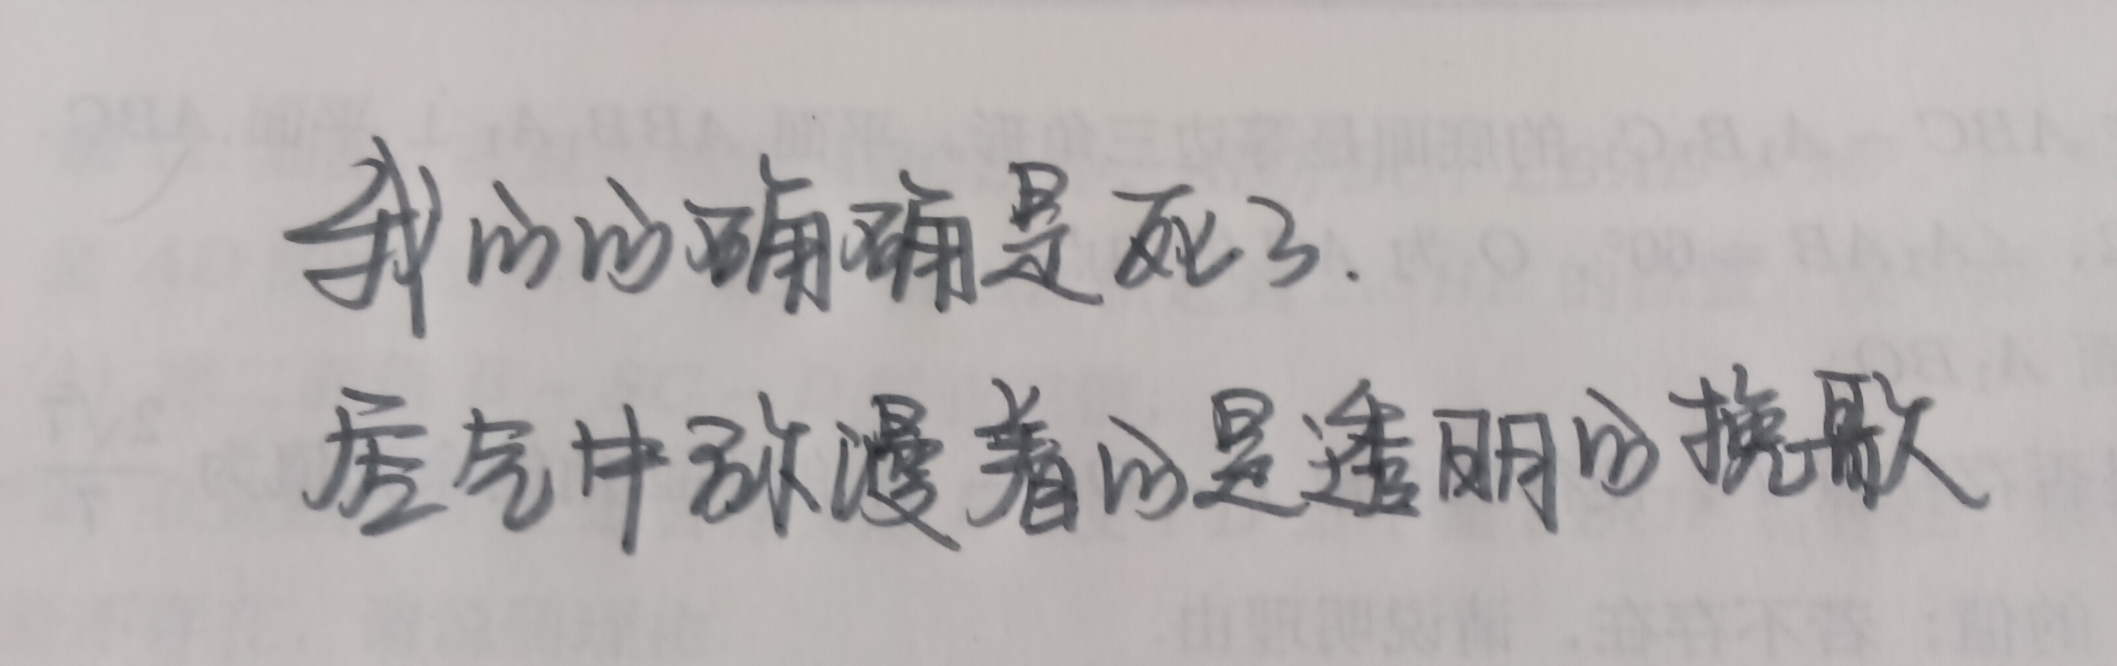 我的的确确是死了.
空气中弥漫着的是透明的挽歌